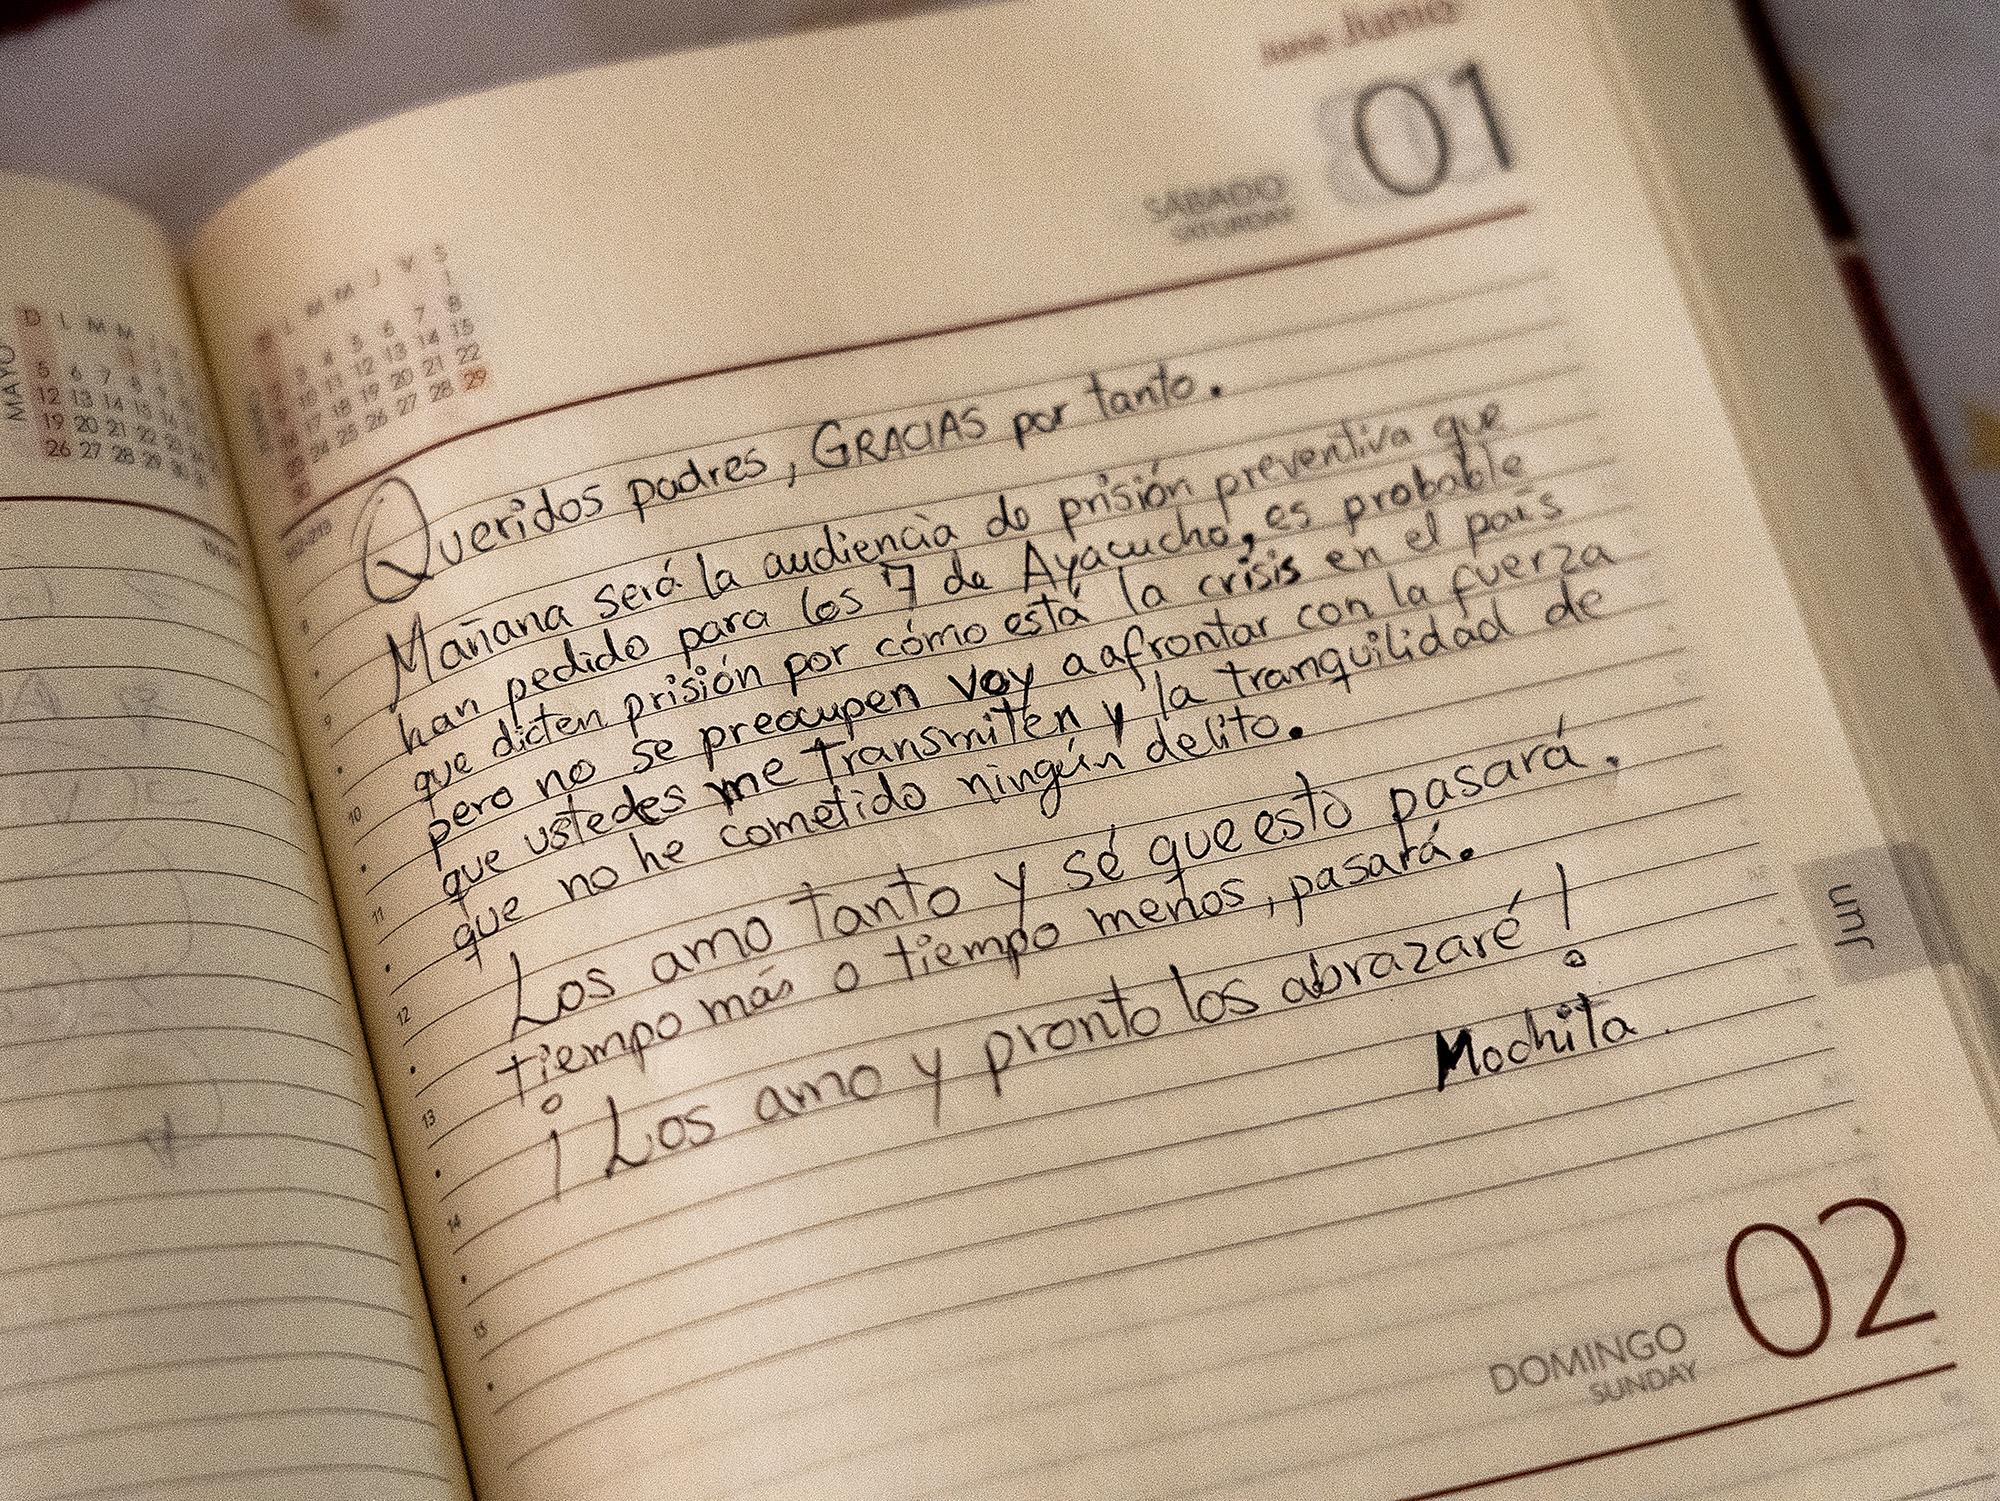 June Junio
01
SÁBADO
SATURDAY
L M M J V S
1
3 4 5 6 7 8
10 11 12 13 14 15
17 18 19 20 21 22
24 25 26 27 28 29
MAYO
D L M M J
5 6 7 8
12 13 14 15
19 20 21 22
26 27 28 29
Queridos padres, GRACIAS por tanto.
Mañana será la audiencia de prisión preventiva que
han pedido para los 7 de Ayacucho, es probable
que dicten prisión por cómo está la crisis en el país
pero no se preocupen voy a afrontar con la fuerza
que ustedes me transmiten y la tranquilidad de
que no he cometido ningún delito.
Los amo tanto y sé que esto pasará,
tiempo más o tiempo menos, pasará.
¡Los amo y pronto los abrazaré!
Mochita.
9
10
11
12
13
14
15
Jun
02
DOMINGO
SUNDAY